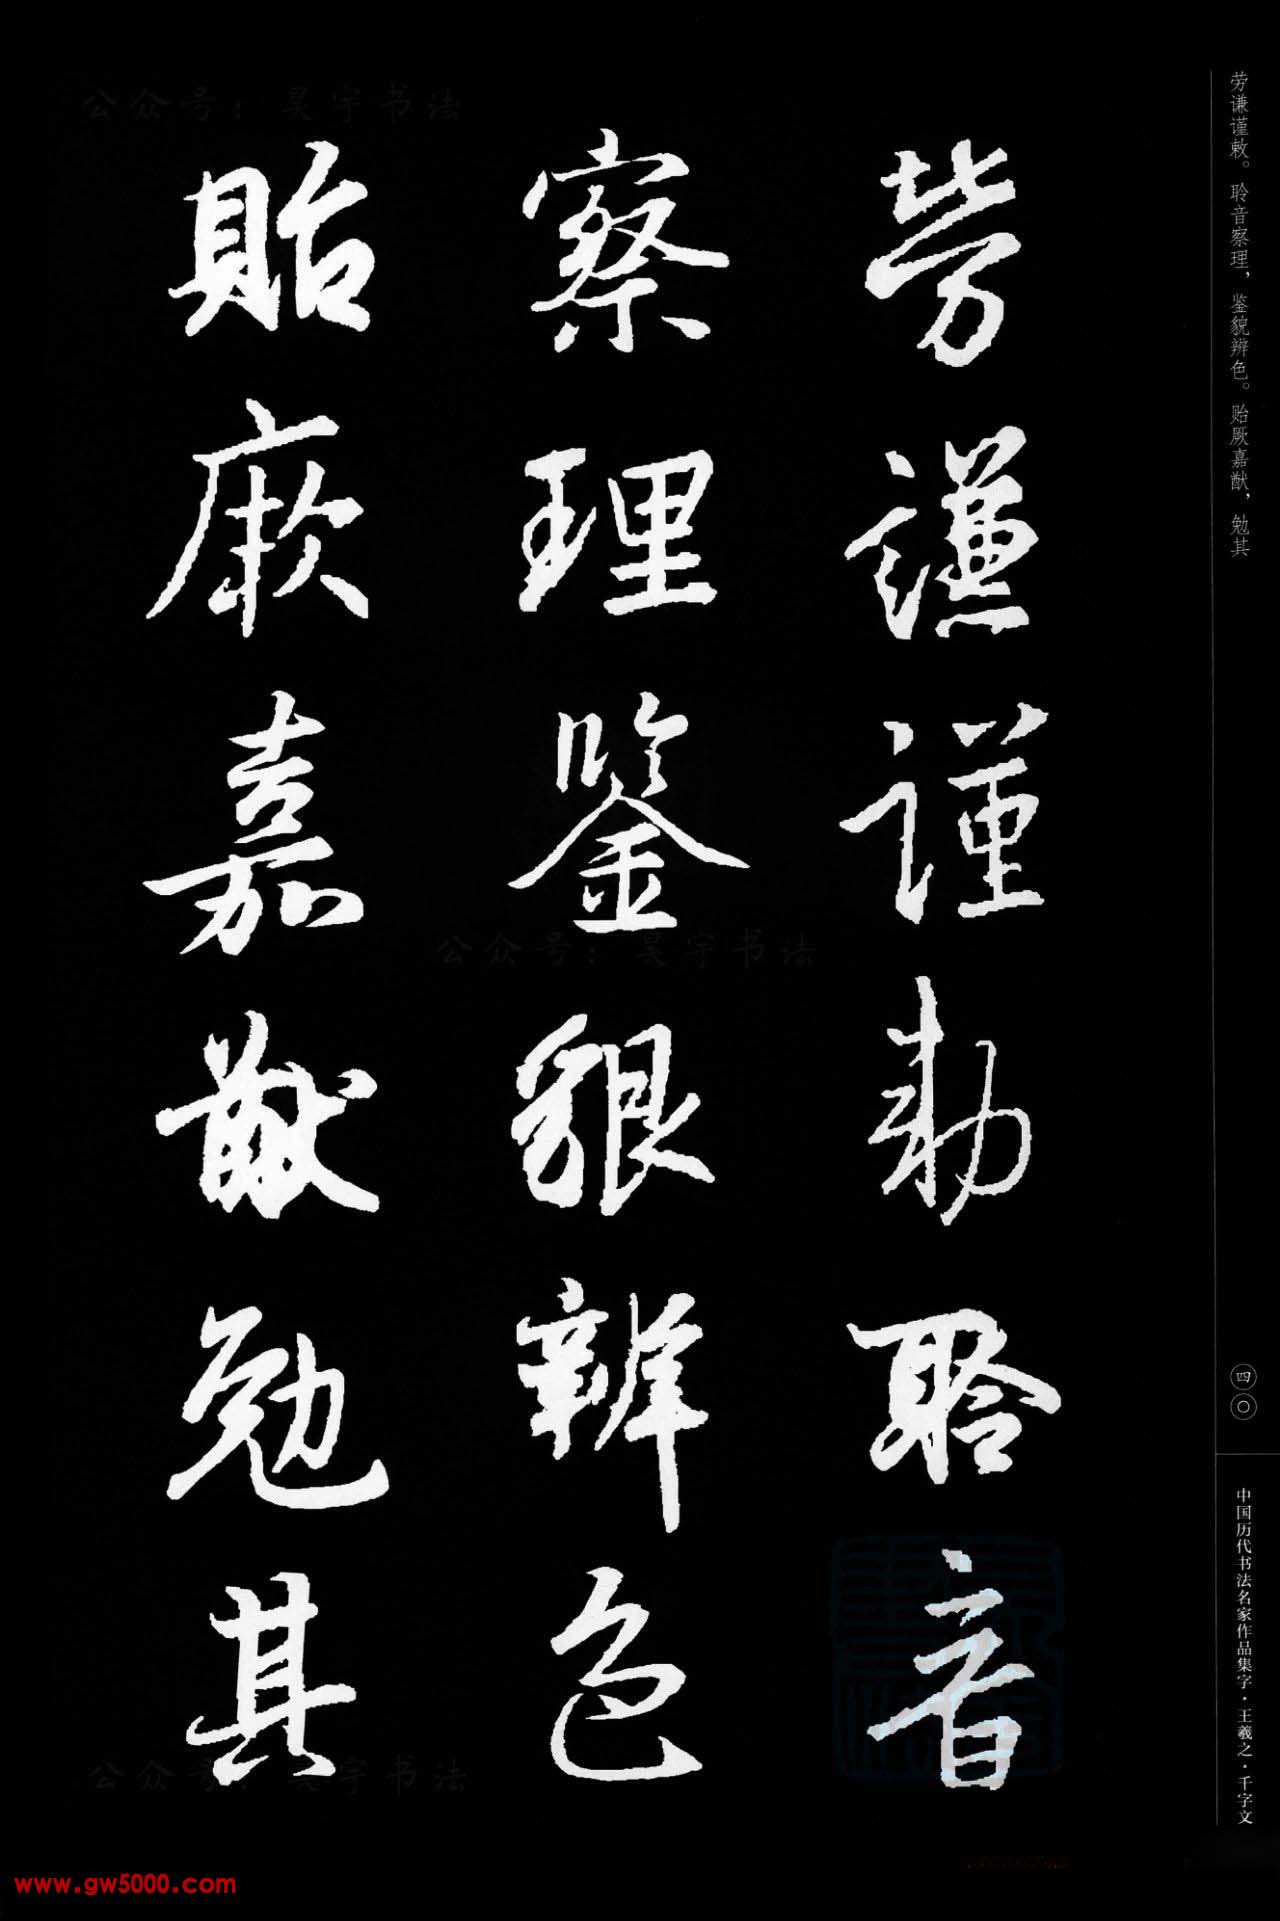 劳谦谨敕。聆音察理，鉴貌辨色。贻厥嘉猷，勉其
勞謙謹勅聆音
察理鑒貌辨色
貽厥嘉猷勉其
四〇
中国历代书法名家作品集字·王羲之·千字文
公众号：昊宇书法
公众号：昊宇书法
公众号：昊宇书法
www.gw5000.com